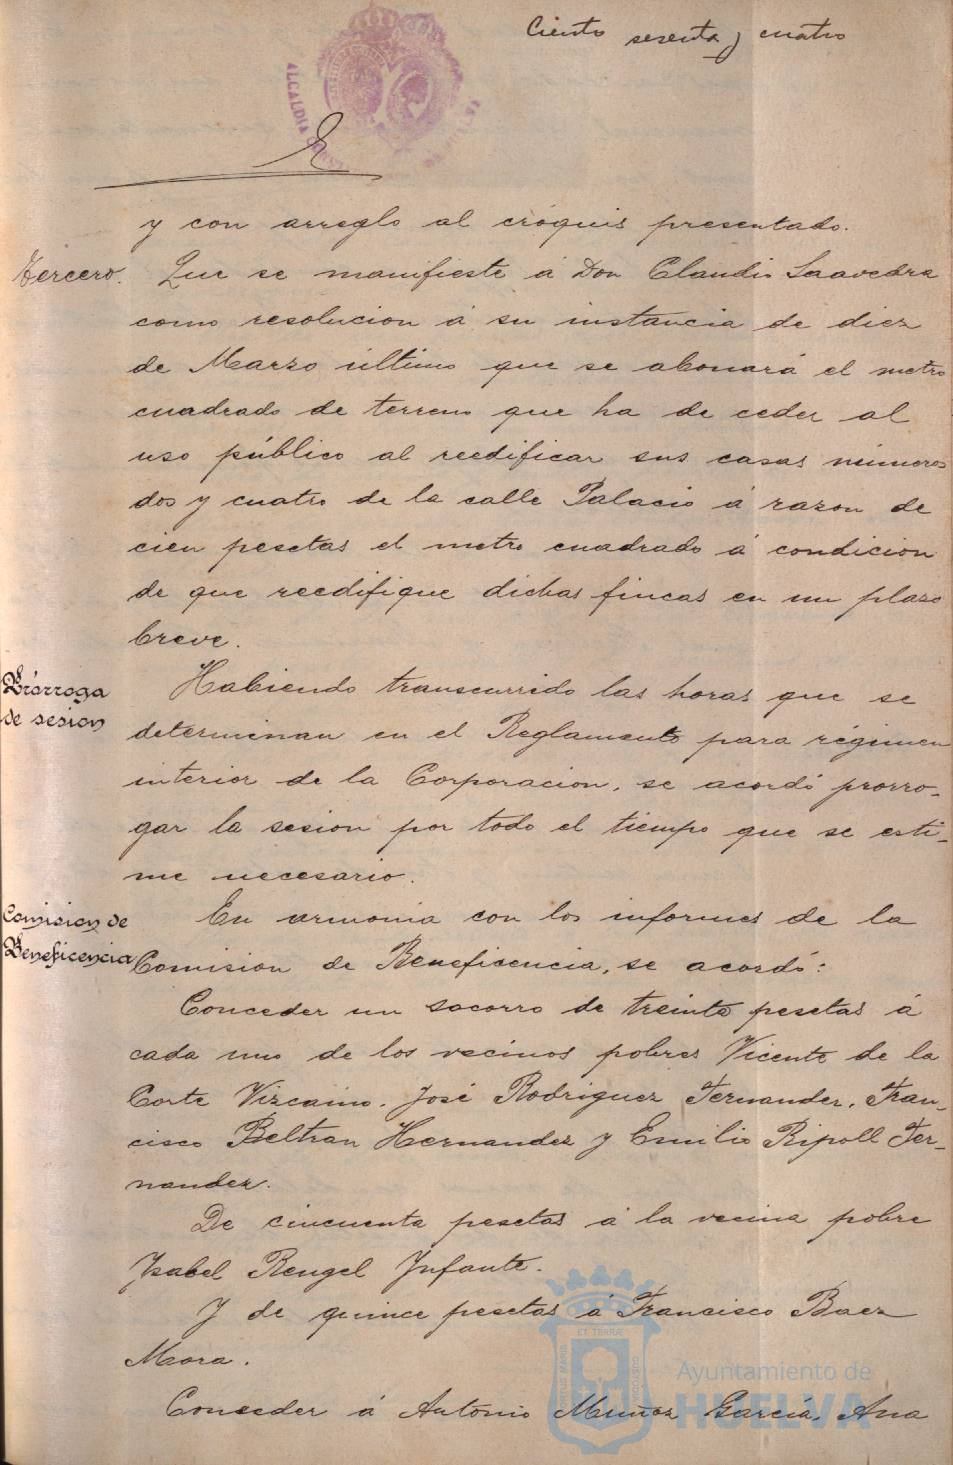 Ciento sesenta y cuatro
ALCALDIA
y con arreglo al cróquis presentado.
Tercero. Que se manifieste á Don Claudio Saavedra
como resolucion á su instancia de diez
de Marzo último que se abonará el metro
cuadrado de terreno que ha de ceder al
uso público al reedificar sus casas números
dos y cuatro de la calle Palacio á razon de
cien pesetas el metro cuadrado á condicion
de que reedifique dichas fincas en un plazo
breve.
Prórroga
de sesion
Habiendo transcurrido las horas que se
determinan en el Reglamento para régimen
interior de la Corporacion, se acordó prorro-
gar la sesion por todo el tiempo que se esti-
me necesario.
Comision de
Beneficencia
En armonia con los informes de la
Comision de Beneficencia, se acordó:
Conceder un socorro de treinta pesetas á
cada uno de los vecinos pobres Vicente de la
Corte Vizcaino. José Rodriguez Fernandez, Fran-
cisco Beltran Hernandez y Emilio Ripoll Fer-
nandez.
De cincuenta pesetas á la vecina pobre
Ysabel Rengel Ynfante.
Y de quince pesetas á Francisco Baez
Mora.
Conceder á Antonio Muñoz Garcia, Ana
Ayuntamiento de
HUELVA